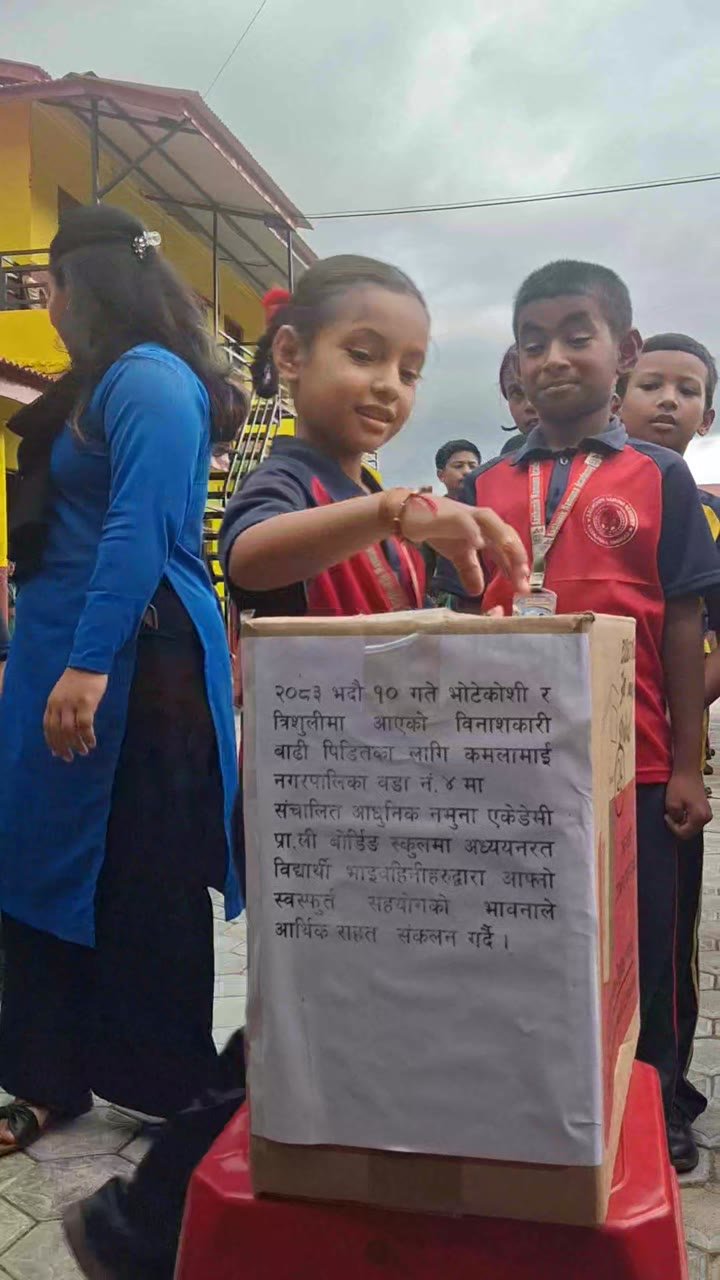 २०८३ भदौ १० गते भोटेकोशी र
त्रिशुलीमा आएको विनाशकारी
बाढी पिडितका लागि कमलामाई
नगरपालिका वडा नं. ४ मा
संचालित आधुनिक नमुना एकेडेमी
प्रा.ली बोर्डिङ स्कुलमा अध्ययनरत
विद्यार्थी भाइबहिनीहरुद्वारा आफ्नो
स्वस्फुर्त सहयोगको भावनाले
आर्थिक राहत संकलन गर्दै ।